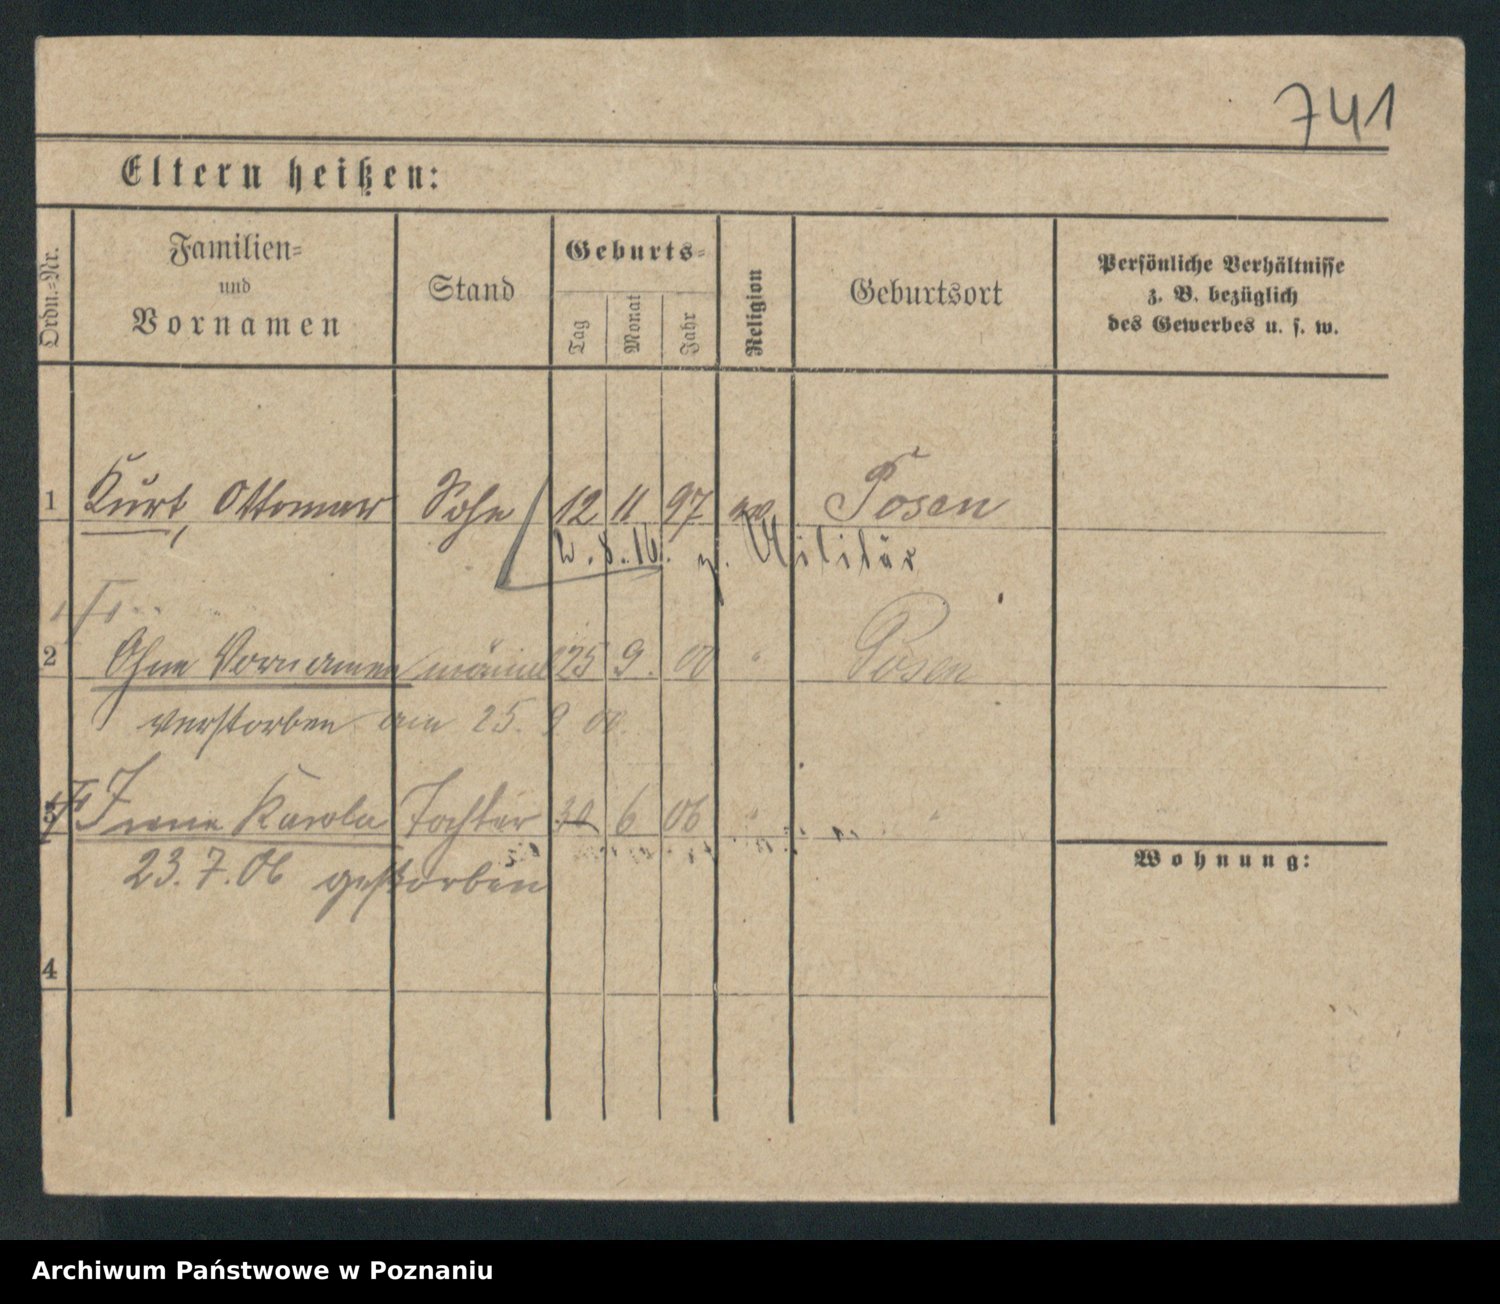 741
Eltern heißen:
Ordn.-Nr.
Familien-
und
Vornamen
Stand
Geburts-
Tag
Monat
Jahr
Religion
Geburtsort
Persönliche Verhältnisse
z. B. bezüglich
des Gewerbes u. s. w.
1 Kurt, Ottomar Sohn 12 11 97 ev Posen
2. 8. 16. z. Militär
2 Ohne Vornamen männl 25 9. 00 " Posen
verstorben am 25. 9 00.
3 Irene Karola Tochter 30 6 06 " "
23. 7. 06 gestorben
Wohnung:
4
Archiwum Państwowe w Poznaniu